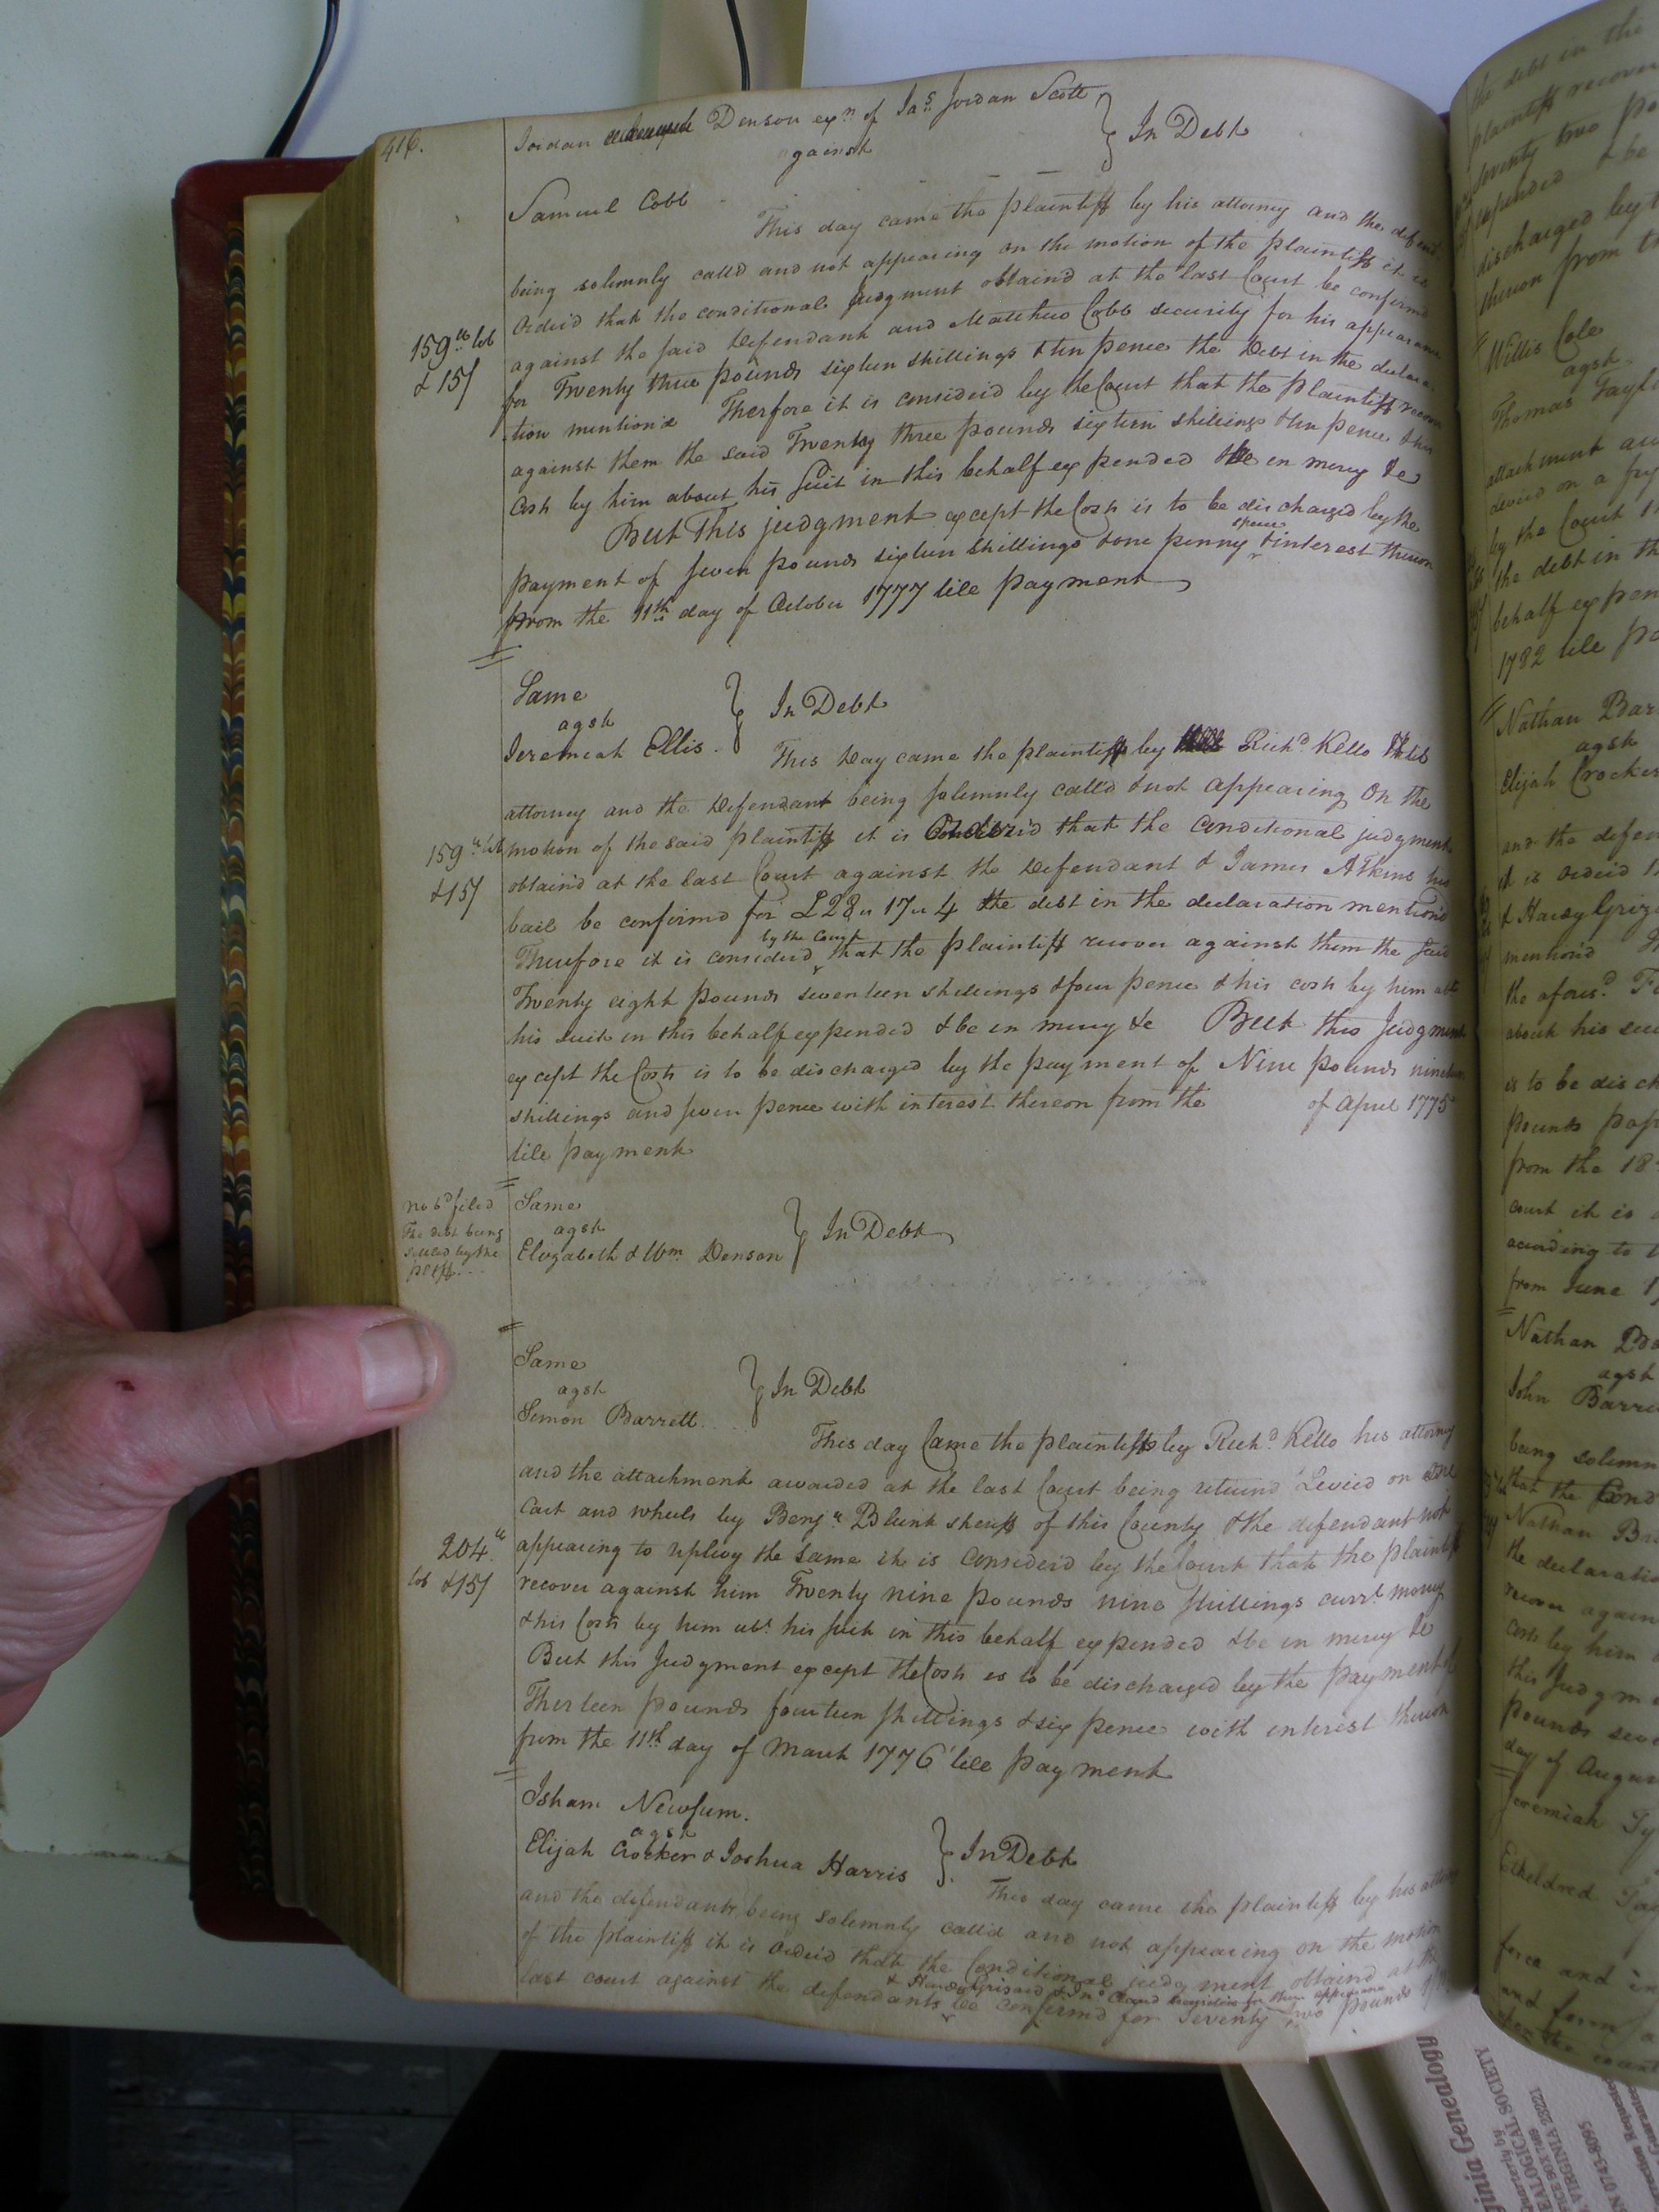 416.
Jordan Denson exr. of Jas. Jordan Scott
against
In Debt
Samuel Cobb
This day came the plaintiff by his attorney and the defend.
being solemnly call'd and not appearing on the motion of the plaintiff it is
Order'd that the conditional Judgment obtain'd at the last Court be confirmd
against the said Defendant and Matthew Cobb security for his appearance
159 lb
& 15/
for Twenty three pounds sixteen shillings & ten pence the Debt in the declara-
tion mention'd Therfore it is consider'd by the Court that the plaintiff recover
against them the said Twenty three pounds sixteen shillings & ten pence & his
Costs by him about his Suit in this behalf expended & be in mercy &c
But This judgment except the Costs is to be discharged by the
payment of seven pounds sixteen shillings & one penny specie & interest thereon
from the 11th day of October 1777 till payment
Same
agst
In Debt
Jeremiah Ellis.
This day came the plaintiff by Richd. Kello his
attorney and the Defendant being solemnly call'd & not appearing On the
159 lb
& 15/
motion of the said plaintiff it is Order'd that the Conditional judgment
obtain'd at the last Court against the Defendant & James Atkins his
bail be confirmd for £28 " 17 " 4 the debt in the declaration mention'd
Therefore it is consider'd by the Court that the plaintiff recover against them the said
Twenty eight pounds seventeen shillings & four pence & his costs by him abt
his suit in this behalf expended & be in mercy &c But this Judgment
except the Costs is to be discharged by the payment of Nine pounds nineteen
shillings and seven pence with interest thereon from the of April 1775
till payment
no bd filed
The debt being
settled by the
pltff...
Same
agst
In Debt
Elizabeth & Wm. Denson
Same
agst
In Debt
Simon Barrett
This day Came the plaintiff by Richd. Kello his attorney
and the attachment awarded at the last Court being returnd Levied on One
Cart and wheels by Benja. Blunt sheriff of this County & the defendant not
204
lb & 15/
appearing to replevy the same it is Consider'd by the Court that the plaintiff
recover against him Twenty nine pounds nine shillings currt. money
& his Costs by him abt. his suit in this behalf expended & be in mercy &c
But this Judgment except the Costs is to be discharged by the payment of
Thirteen pounds fourteen shillings & six pence with interest thereon
from the 11th day of March 1776 till payment
Isham Newsum.
agst
In Debt
Elijah Crocker & Joshua Harris
This day came the plaintiff by his attor
and the defendants being solemnly call'd and not appearing on the motion
of the plaintiff it is Order'd that the Conditional judgment obtaind at the
& Hardy Grizard & Jno. securities for their appearance
last court against the defendants be confirmd for Seventy two pounds
the debt in the
plaintiff recover
seventy two po
expended & be
discharged by t
thereon from th
Willis Cole
agst.
Thomas Taylo
attachment aw
by the Court th
the debt in th
behalf expen
1782 till pa
Nathan Bar
agst
Elijah Crocker
and the defen
it is order'd th
& Hardy Griz
mention'd
the afores.d
about his sui
is to be disch
pounds pap
from the 18
court it is
according to t
from June 1
Nathan
agst
John Barre
being solemn
that the Cond
Nathan
the declaratio
recover again
costs by him
this Judgme
pounds seve
day of Augu
Jeremiah Ty
Etheldred Tay
force and
and form
Virginia Genealogy
GENEALOGICAL SOCIETY
VIRGINIA 23221